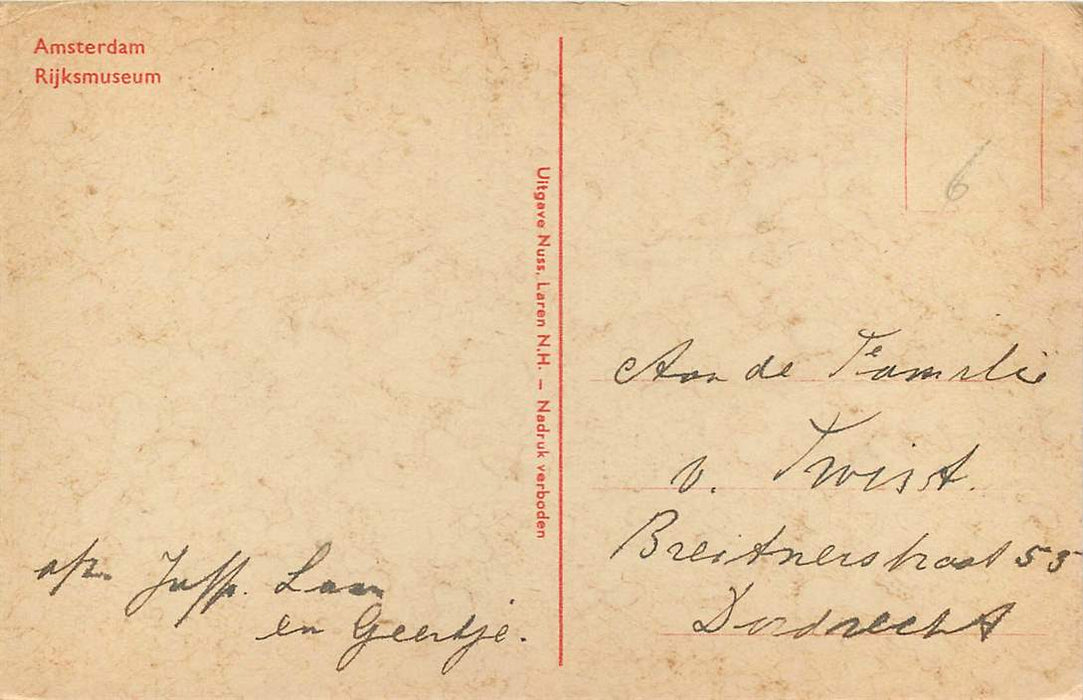 Amsterdam
Rijksmuseum
Uitgave Nuss, Laren N.H. – Nadruk verboden
6
Aan de Familie
v. Twist.
Breitnerstraat 53
Dordrecht
afz. Juff. Laan
en Geertje.